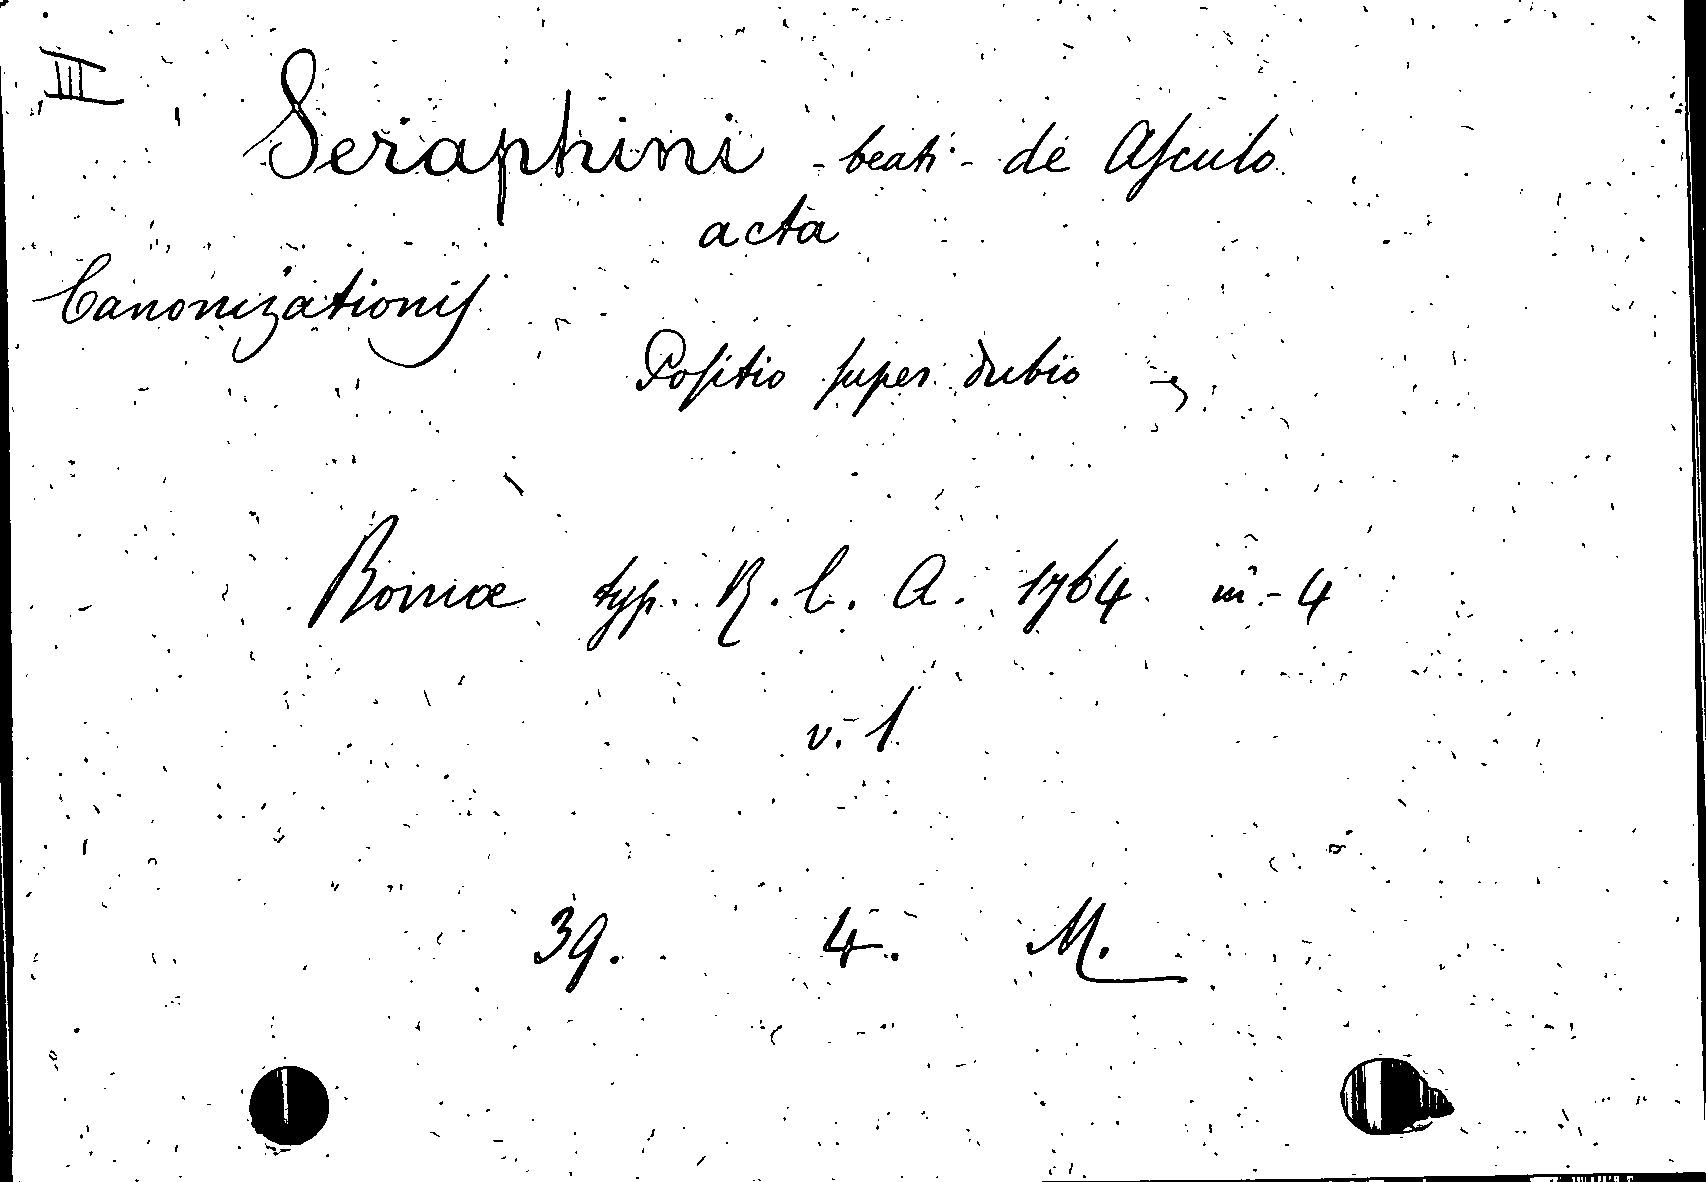 III
Seraphini - beati - de Asculo
acta
Canonizationis
Positio super dubio
Romæ typ. R. C. A. 1764 in-4
v. 1
39. 4. M.